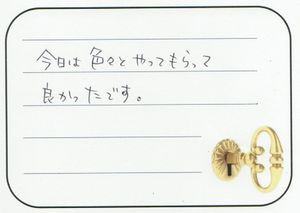 今日は色々とやってもらって
良かったです。